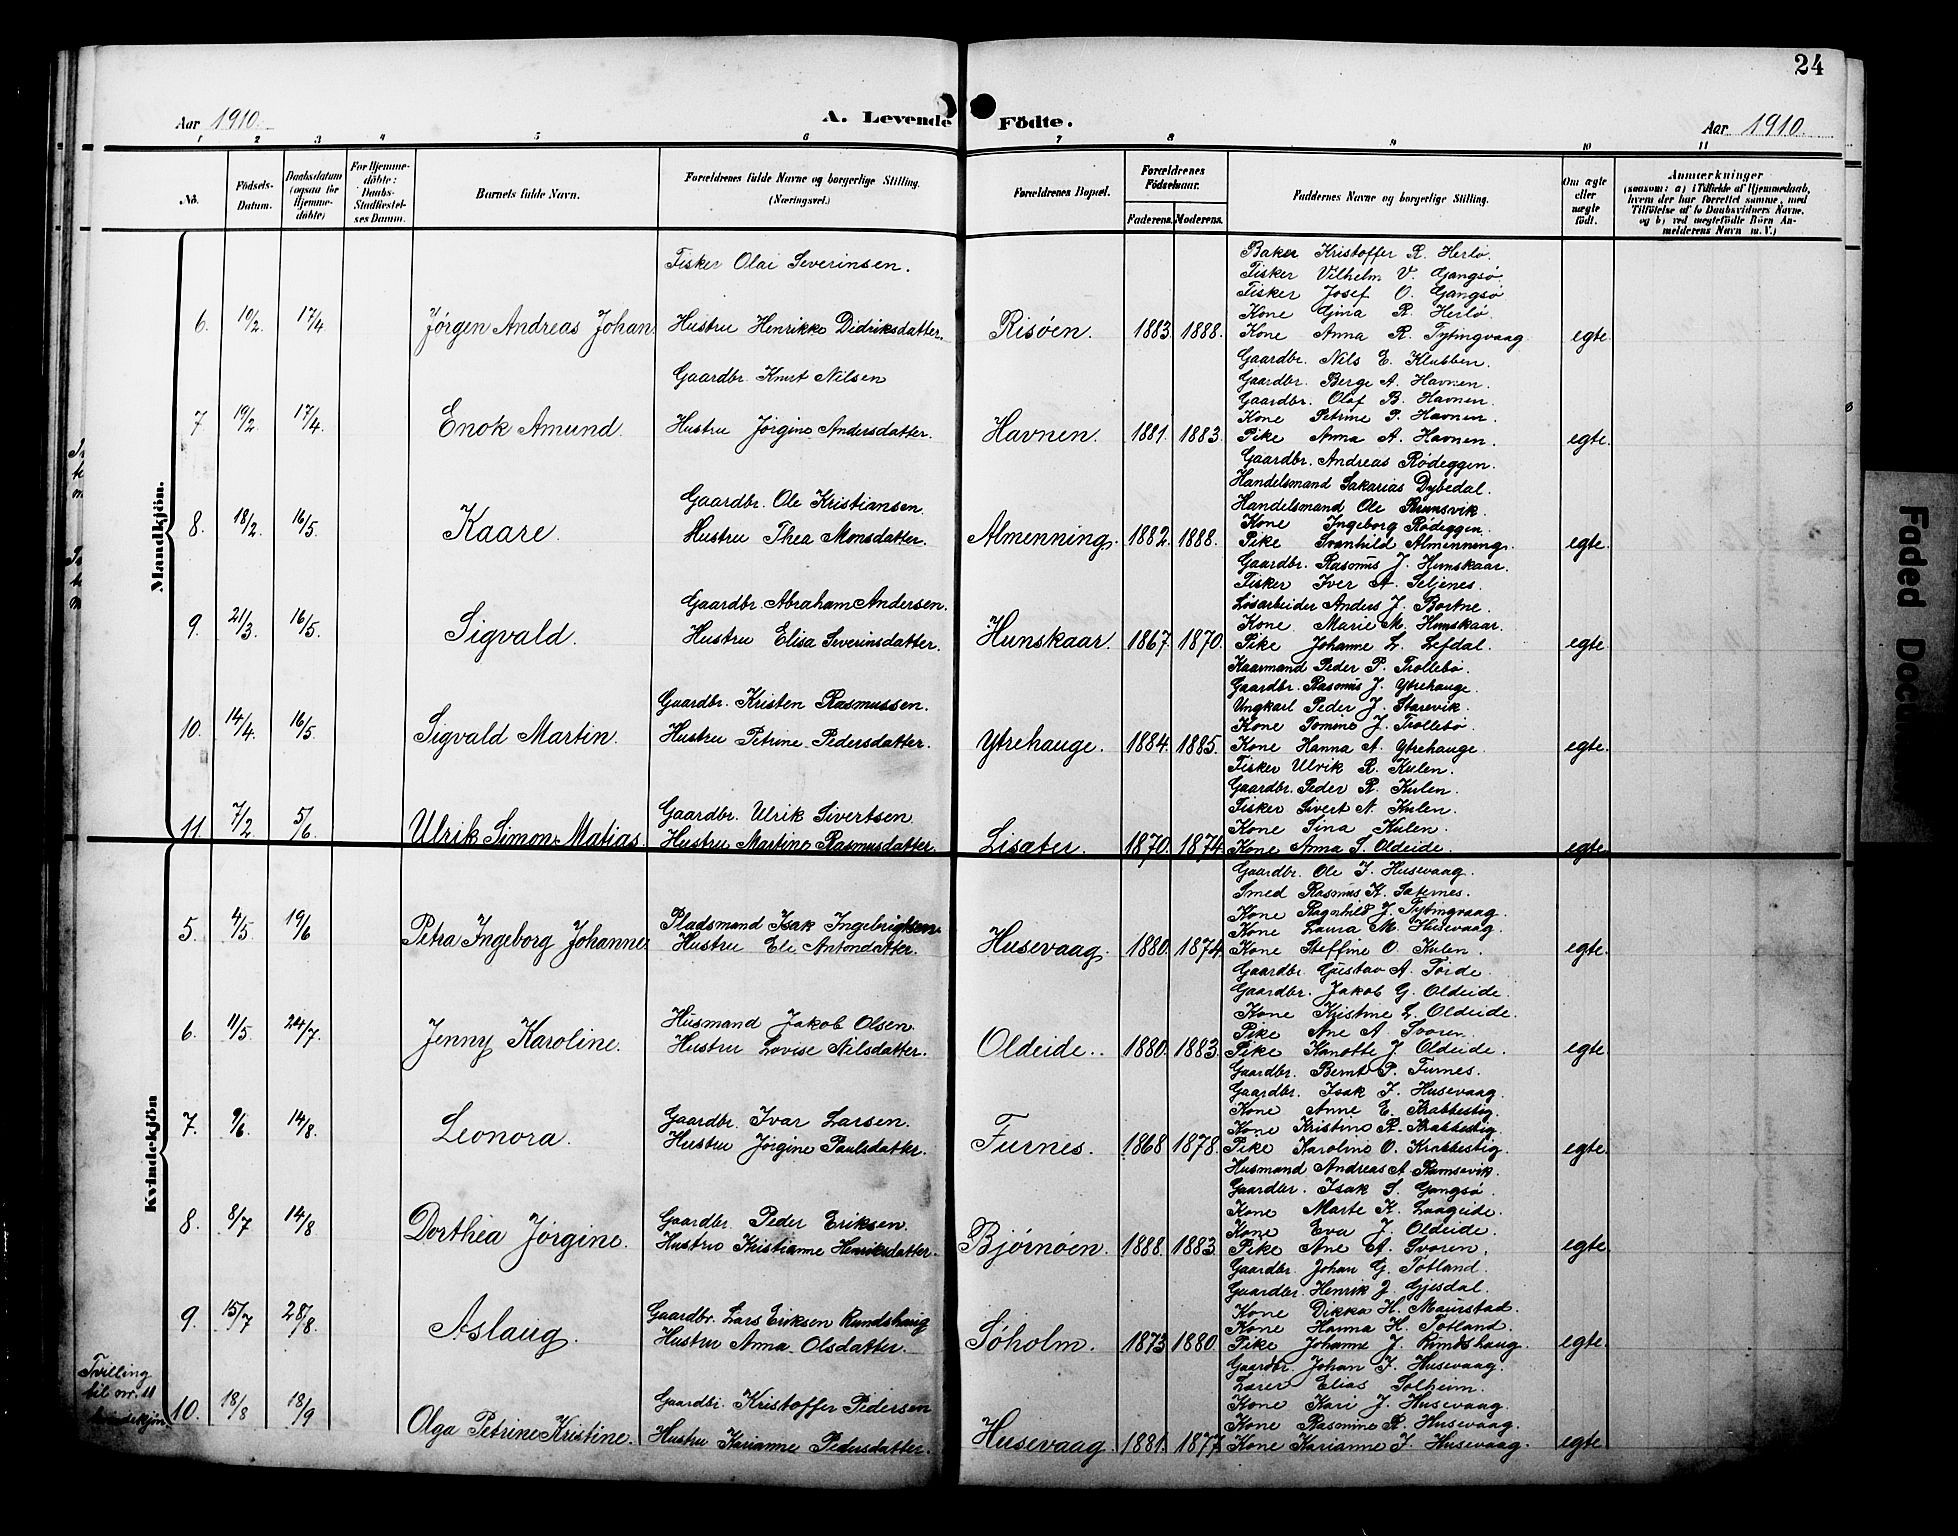 24
Aar 1910.
A. Levende Födte.
Aar 1910.
1 2 3 4 5 6 7 8 9 10 11
No.
Födsels-Datum.
Daabsdatum (ogsaa for Hjemme-döbte)
For Hjemme-döbte: Daabs-Stadfæstel-ses Datum.
Barnets fulde Navn.
Forældrenes fulde Navne og borgerlige Stilling. (Næringsvei.)
Forældrenes Bopæl.
Forældrenes Födselsaar.
Faderens. Moderens.
Faddernes Navne og borgerlige Stilling.
Om ægte eller uægte födt.
Anmærkninger
(saasom: a) i Tilfælde af Hjemmedaab, hvem der har forrettet samme, med Tilföielse af to Daabsvidners Navne, og b) ved uægtefödte Börn An-melderens Navn m. V.)
Mandkjön.
Fisker Olai Severinsen.
6. 10/2. 17/4. Jørgen Andreas Johan Hustru Henrikke Didriksdatter. Risøen. 1883. 1888. egte.
Baker Kristoffer R. Herlø.
Fisker Vilhelm V. Gangsø.
Fisker Josef O. Gangsø
Kone Gina R. Herlø.
Kone Anna R. Tytingvaag.
Gaardbr. Knut Nilsen
7 19/2. 17/4. Enok Amund. Hustru Jørgine Andersdatter. Havnen. 1881. 1883. egte.
Gaardbr. Nils E. Klubben.
Gaardbr. Berge A. Havnen.
Gaardbr. Olaf B. Havnen.
Kone Petrine P. Havnen.
Pike Anna A. Havnen.
Gaardbr. Ole Kristiansen.
8. 18/2. 16/5. Kaare. Hustru Thea Monsdatter. Almenning. 1882. 1888. egte.
Gaardbr. Andreas Rødeggen.
Handelsmand Sakarias Dybedal.
Handelsmand Ole Brunsvik.
Kone Ingeborg Rødeggen.
Pike Svanhild Almenning.
Gaardbr. Abraham Andersen.
9. 21/3. 16/5. Sigvald. Hustru Elisa Severinsdatter. Hunskaar. 1867. 1870. egte.
Gaardbr. Rasmus J. Hunskaar.
Fisker Iver A. Seljenes.
Løsarbeider Anders J. Bortne.
Kone Marie M. Hunskaar.
Pike Johanne L. Lefdal.
Gaardbr. Kristen Rasmussen.
10. 14/4. 16/5. Sigvald Martin. Hustru Petrine Pedersdatter. Ytrehauge. 1884. 1885. egte.
Kaarmand Peder P. Trollebø.
Gaardbr. Rasmus J. Ytrehauge.
Ungkarl Peder J. Starevik.
Kone Tomine J. Trollebø.
Kone Hanna A. Ytrehauge.
Gaardbr. Ulrik Sivertsen
11. 7/2. 5/6. Ulrik Simon Matias Hustru Martine Rasmusdatter. Lisæter. 1870. 1874. egte.
Fisker Ulrik R. Kulen.
Gaardbr. Peder R. Kulen.
Fisker Sivert N. Kulen.
Kone Sina Kulen.
Kone Anna S. Oldeide.
Kvindekjön
Pladsmand Isak Ingebrigtsen.
5. 4/5. 19/6 Petra Ingeborg Johanne Hustru Eli Antondatter. Husevaag. 1880. 1874. egte.
Gaardbr. Ole J. Husevaag.
Smed Rasmus K. Sæternes.
Kone Ragnhild J. Tytingvaag.
Kone Laura M. Husevaag.
Kone Steffine O. Kulen.
Husmand Jakob Olsen
6. 11/5. 24/7. Jenny Karoline. Hustru Lovise Nilsdatter. Oldeide. 1880. 1883. egte.
Gaardbr. Gustav A. Førde.
Gaardbr. Jakob G. Oldeide.
Kone Kristine L. Oldeide.
Pike Ane A. Svoren.
Pike Kanotte J. Oldeide.
Gaardbr. Ivar Larsen.
7. 9/6. 14/8. Leonora. Hustru Jørgine Paulsdatter. Furnes. 1868 1878. egte.
Gaardbr. Bernt P. Furnes.
Gaardbr. Isak J. Husevaag.
Kone Anne E. Krabbestig.
Kone Kristine R. Krabbestig.
Pike Karoline O. Krabbestig.
Gaardbr. Peder Eriksen.
8. 8/7 14/8 Dorthea Jørgine. Hustru Kristianne Henriksdatter. Bjørnøen. 1888. 1883. egte.
Husmand Andreas A. Ramsevik.
Gaardbr. Isak S. Gangsø.
Kone Marte K. Laageide.
Kone Eva J. Oldeide.
Pike Ane A. Svoren.
Gaardbr. Lars Eriksen Rundshaug
9. 15/7 28/8. Aslaug. Hustru Anna Olsdatter. Søholm. 1873 1880. egte.
Gaardbr. Johan G. Totland.
Gaardbr. Henrik J. Gjesdal.
Kone Dikka H. Maurstad.
Kone Hanna H. Totland.
Pike Johanne J. Rundshaug.
Tvilling til nr. 11 kvindekjøn
Gaardbr. Kristoffer Pedersen
10. 18/8 18/9 Olga Petrine Kristine. Hustru Karianne Pedersdatter. Husevaag. 1881. 1877. egte.
Gaardbr. Johan J. Husevaag.
Lærer Elias Solheim.
Kone Kari J. Husevaag.
Kone Rasmine R. Husevaag.
Kone Karianne J. Husevaag.
Faded Doc